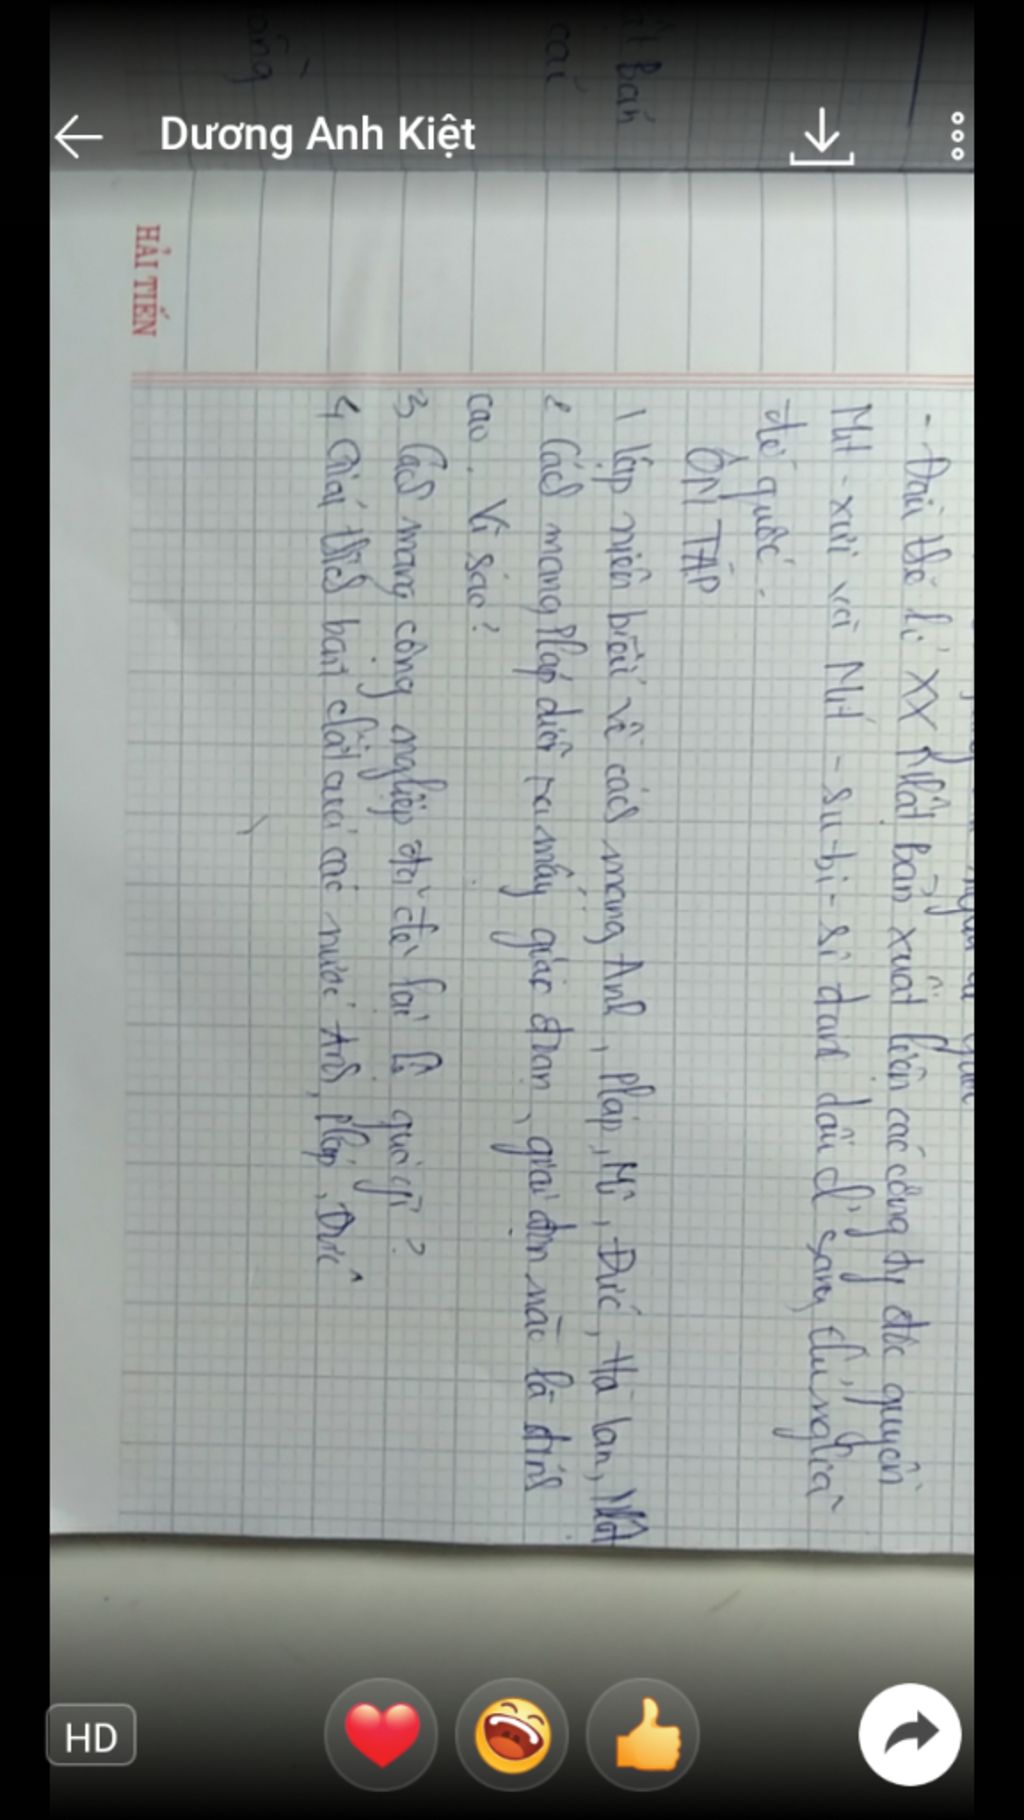 Dương Anh Kiệt
HẢI TIẾN
- Đầu thế kỉ XX Nhật bản xuất hiện các công ty độc quyền
Mít-xưi và Mít-su-bi-si đánh dấu ch sang chủ nghĩa
đế quốc.
ÔN TẬP
1 lập niên biểu về cách mạng Anh, Pháp, Mĩ, Đức, Hà lan, Nhật
2 Cách mạng Pháp diễn ra mấy giao đoạn, giai đoạn nào là đỉnh
cao. Vì sao?
3 Cách mạng công nghiệp đã để lại hệ quả gì?
4, Giải thích bản chất của các nước Anh, Pháp, Đức
HD